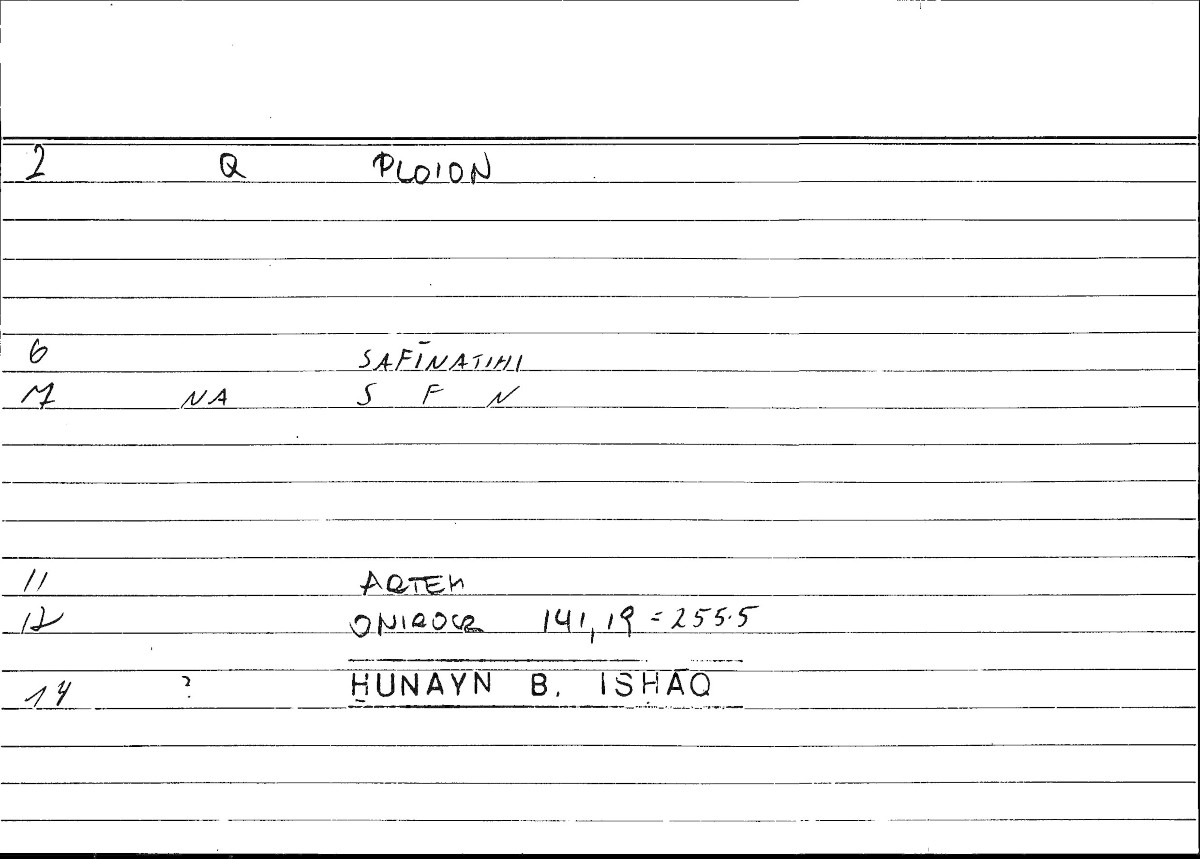 2 Q PLOION
6 SAFĪNATIHI
7 NA S F N
11 ARTEM
12 ONIROCR 141,19 = 255.5
14 ? ḤUNAYN B. ISḤĀQ